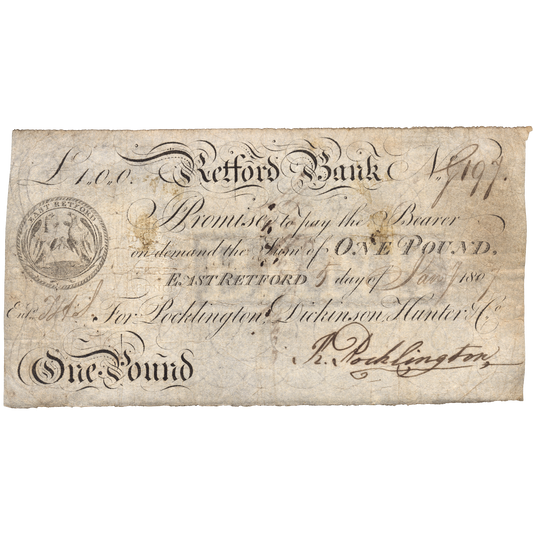 £1.0.0. Retford Bank No. 9197.
EAST RETFORD
I Promise to pay the Bearer
on demand the Sum of ONE POUND.
EAST RETFORD 5 day of Jany 180
Entd. For Pocklington, Dickinson, Hunter & Co
One Pound R. Pocklington